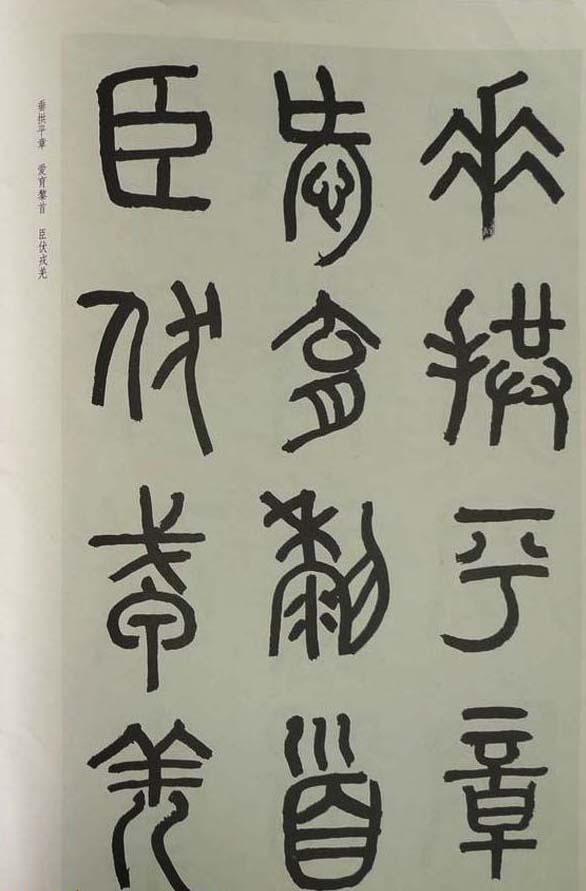 垂拱平章
爱育黎首
臣伏戎羌
垂拱平章 爱育黎首 臣伏戎羌